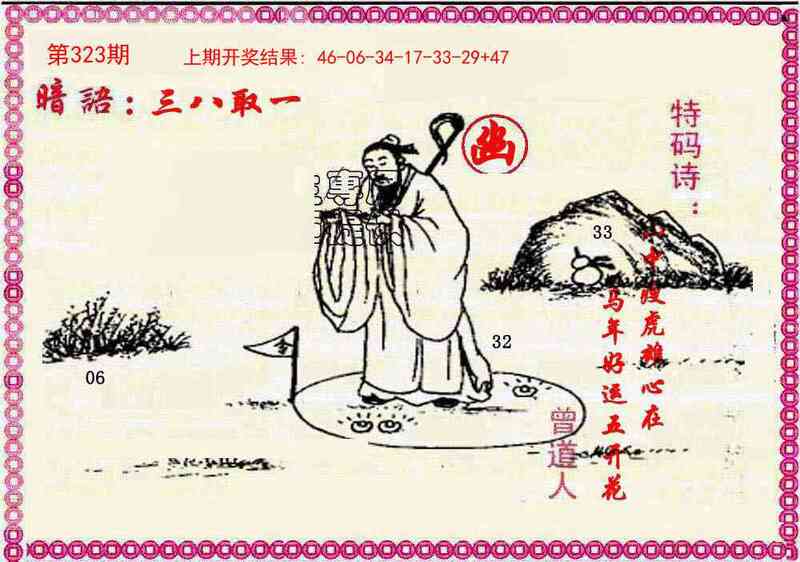 第323期
上期开奖结果：46-06-34-17-33-29+47
暗語：三八取一
幽
特码诗：
中 虎雄心在
马年好运五开花
33
32
06
令
曾道人